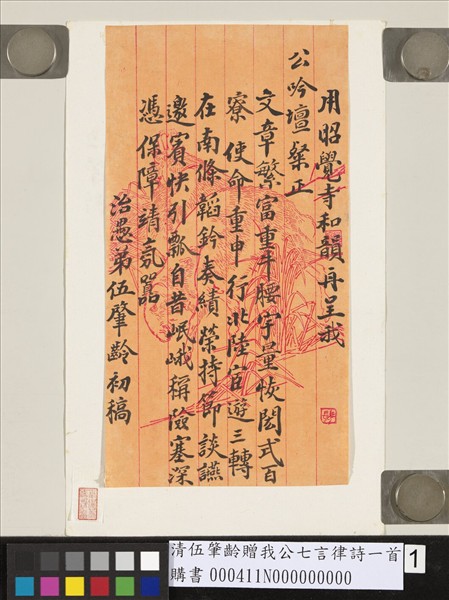 用昭覺寺和韻再呈我
公吟壇粲正
文章繁富重牛腰宇量恢閎式百
寮使命重申行北陸宦遊三轉
在南條韜鈐奏績榮持節談讌
邀賓快引瓢自昔岷峨稱險塞深
憑保障靖氛嚻
治愚弟伍肇齡初稿
清伍肇齡贈我公七言律詩一首
購書 000411N000000000
1